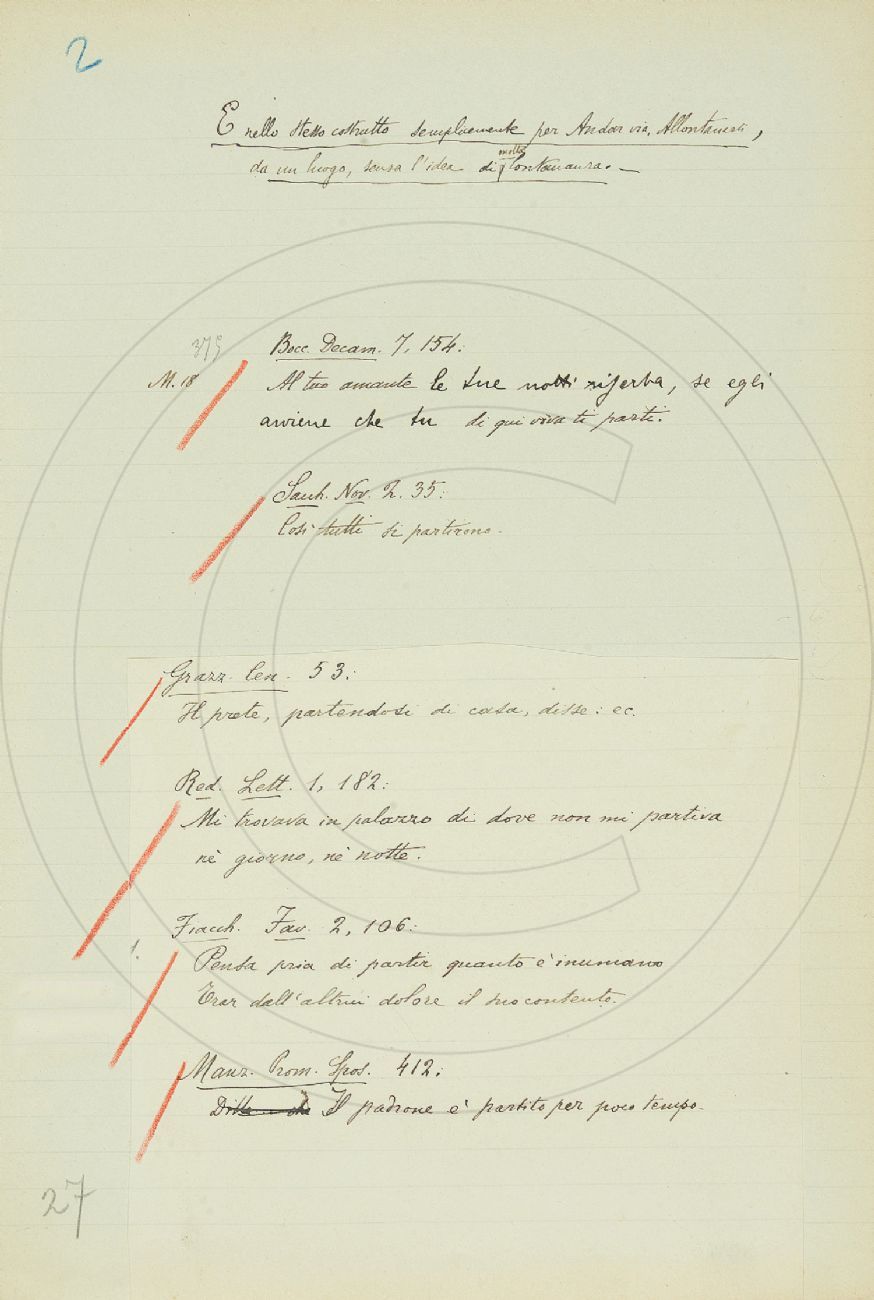 2
E nello stesso costrutto semplicemente per Andar via, Allontanarsi,
da un luogo, senza l'idea di molta lontananza. —
375
Bocc. Decam. 7, 154:
M. 18
Al tuo amante le tue notti riserba, se egli
avviene che tu di qui viva ti parti.
Sacch. Nov. 2. 35:
Così tutti si partirono.
Grazz. Cen. 53:
Il prete, partendosi di casa, disse: ec.
Red. Lett. 1, 182:
Mi trovava in palazzo di dove non mi partiva
nè giorno, nè notte.
Fiacch. Fav. 2, 106:
1.
Pensa pria di partir quanto è inumano
Trar dall'altrui dolore il suo contento.
Manz. Prom. Spos. 412:
Il padrone è partito per poco tempo.
27